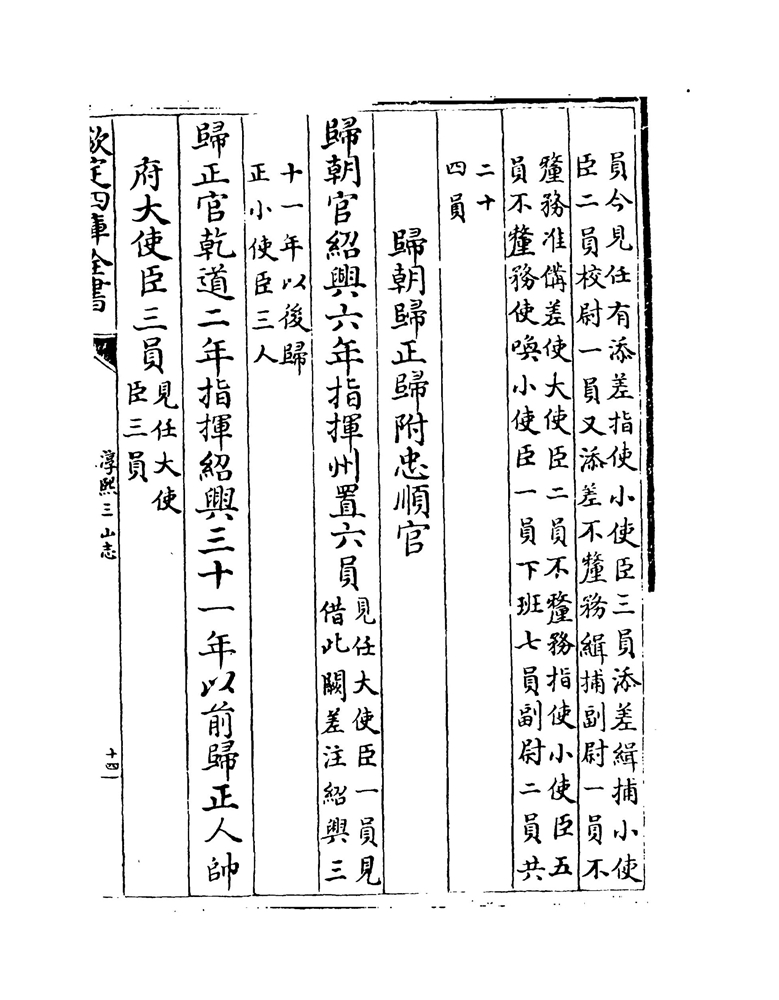 員今見任有添差指使小使臣三員添差緝捕小使
臣二員校尉一員又添差不釐務緝捕副尉一員不
釐務准備差使大使臣二員不釐務指使小使臣五
員不釐務使喚小使臣一員下班七員副尉二員共
二十
四員
歸朝歸正歸附忠順官
歸朝官紹興六年指揮州置六員見任大使臣一員見
借此闕差注紹興三
十一年以後歸
正小使臣三人
歸正官乾道二年指揮紹興三十一年以前歸正人帥
府大使臣三員見任大使
臣三員
欽定四庫全書
淳熙三山志
十四